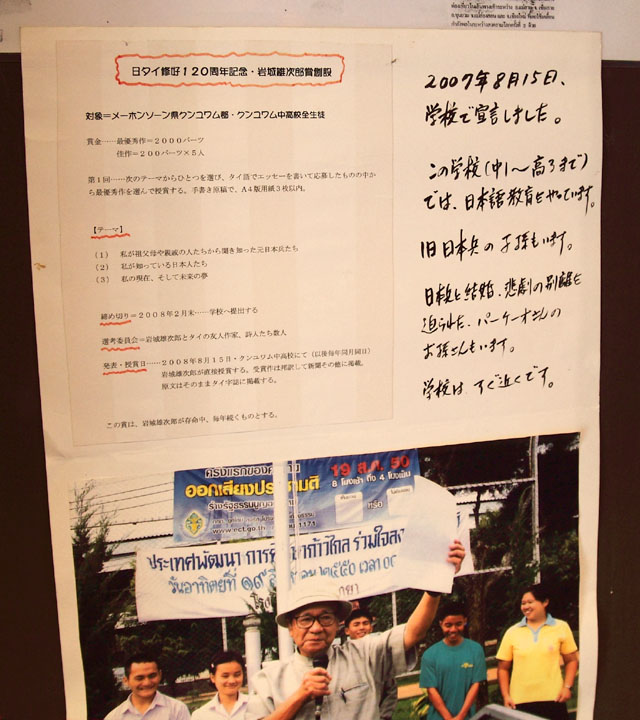 日タイ修好120周年記念・岩城雄次郎賞創設
対象＝メーホンソーン県クンユワム郡・クンユワム中高校全生徒
賞金……最優秀作＝2000バーツ
佳作＝200バーツ×5人
第1回……次のテーマからひとつを選び、タイ語でエッセーを書いて応募したものの中か
ら最優秀作を選んで授賞する。手書き原稿で、A4版用紙3枚以内。
【テーマ】
(1) 私が祖父母や親戚の人たちから聞き知った元日本兵たち
(2) 私が知っている日本人たち
(3) 私の現在、そして未来の夢
締め切り＝2008年2月末……学校へ提出する
選考委員会＝岩城雄次郎とタイの友人作家、詩人たち数人
発表・授賞日……2008年8月15日・クンユワム中高校にて（以後毎年同月同日）
岩城雄次郎が直接授賞する。受賞作は邦訳して新聞その他に掲載。
原文はそのままタイ字誌に掲載する。
この賞は、岩城雄次郎が存命中、毎年続くものとする。
2007年8月15日、
学校で宣言しました。
この学校(中1〜高3まで)
では、日本語教育をやっています。
旧日本兵の子孫もいます。
日本兵と結婚、悲劇の別離を
迫られた、パーケーオさんの
お孫さんもいます。
学校は、すぐ近くです。
ครั้งแรกของคนไทย
19 ส.ค. 50
8 โมงเช้า ถึง 4 โมงเย็น
ออกเสียงประชามติ
ร่างรัฐธรรมนูญ
หรือ
www.ect.go.th
1171
ประเทศพัฒนา การ
ก้าวไกล ร่วมใจลง
วันอาทิตย์ที่ ๑๙
๒๕๕๐ เวลา